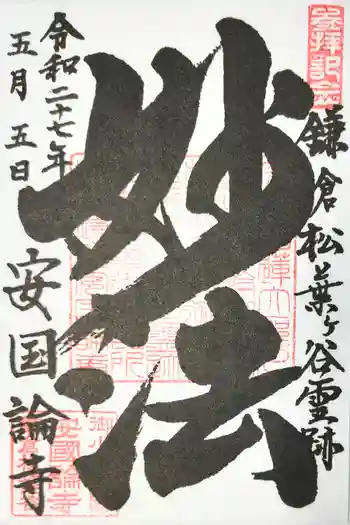 参拝記念
鎌倉松葉ヶ谷霊跡
妙法
令和二十七年
五月五日
安国論寺
安國論寺